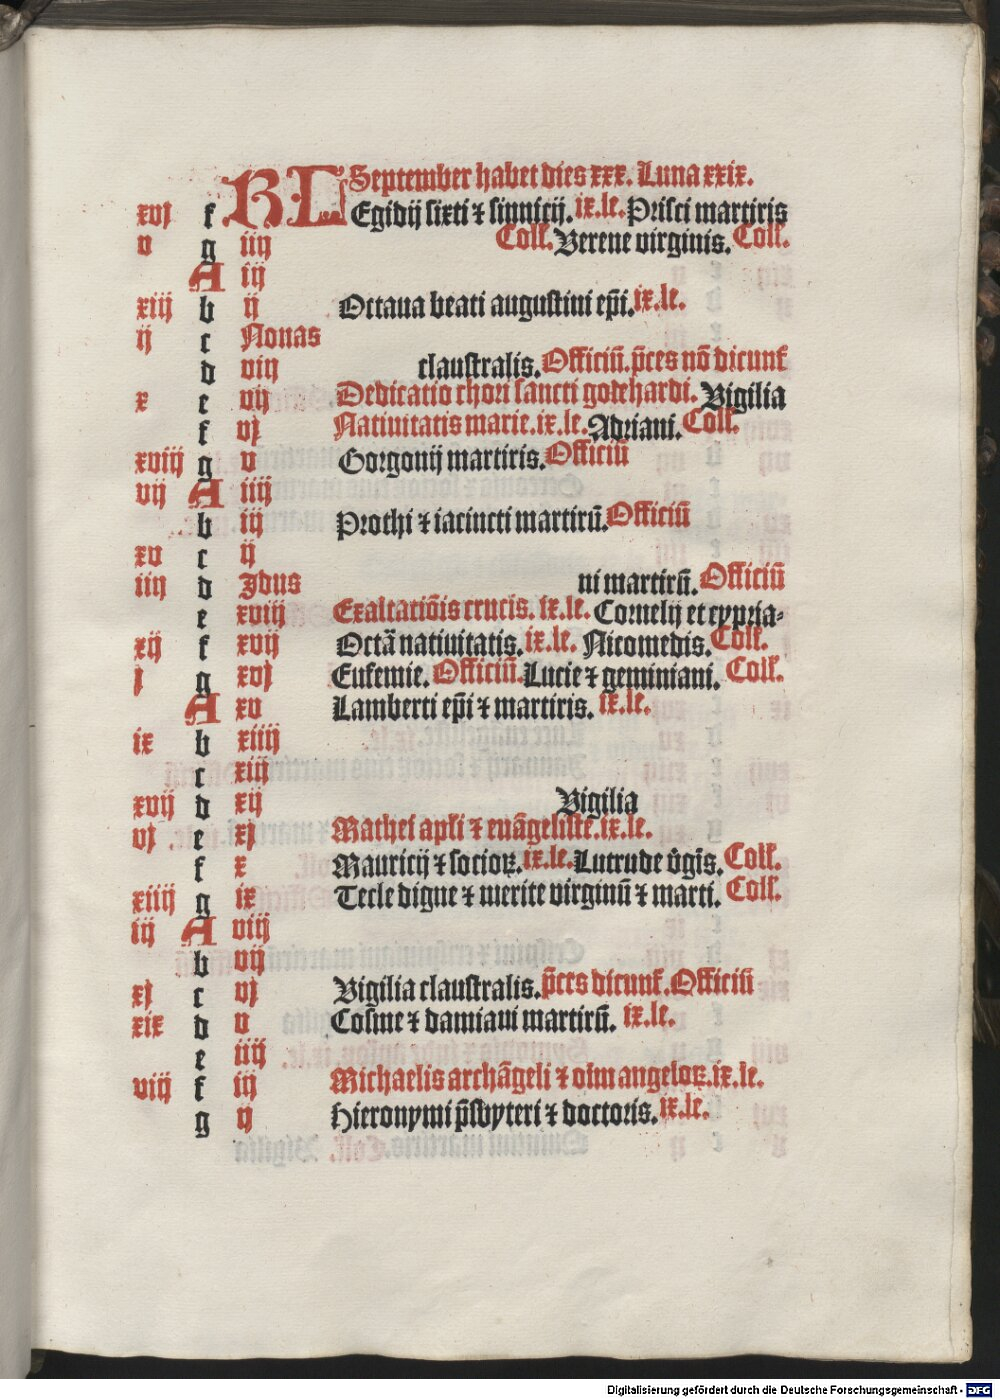 KL September habet dies xxx. Luna xxix.
xvj f Egidij sixti ⁊ sinnicij. ix.le. Prisci martiris
v g iiij Coll. Verene virginis. Coll.
A iij
xiij b ij Octaua beati augustini ep̄i. ix.le.
ij c Nonas
d viij claustralis. Officiū. p̄ces nō dicunt
x e vij Dedicatio chori sancti godehardi. Vigilia
f vj Natiuitatis marie. ix.le. Adriani. Coll.
xviij g v Gorgonij martiris. Officiū
vij A iiij
b iij Prothi ⁊ iacincti martirū. Officiū
xv c ij
iiij d Jdus ni martirū. Officiū
e xviij Exaltatiōis crucis. ix.le. Cornelij et cypria-
xij f xvij Octā natiuitatis. ix.le. Nicomedis. Coll.
j g xvj Eufemie. Officiū. Lucie ⁊ geminiani. Coll.
A xv Lamberti ep̄i ⁊ martiris. ix.le.
ix b xiiij
c xiij
xvij d xij Vigilia
vj e xj Mathei apl̄i ⁊ euāgeliste. ix.le.
f x Mauricij ⁊ socioꝝ. ix.le. Lutrude v̄gīs. Coll.
xiiij g ix Tecle digne ⁊ merite virginū ⁊ marti. Coll.
iij A viij
b vij
xj c vj Vigilia claustralis. p̄ces dicunt. Officiū
xix d v Cosme ⁊ damiani martirū. ix.le.
e iiij
viij f iij Michaelis archāgeli ⁊ oīm angeloꝝ. ix.le.
g ij Hieronymi p̄sbyteri ⁊ doctoris. ix.le.
Digitalisierung gefördert durch die Deutsche Forschungsgemeinschaft - DFG